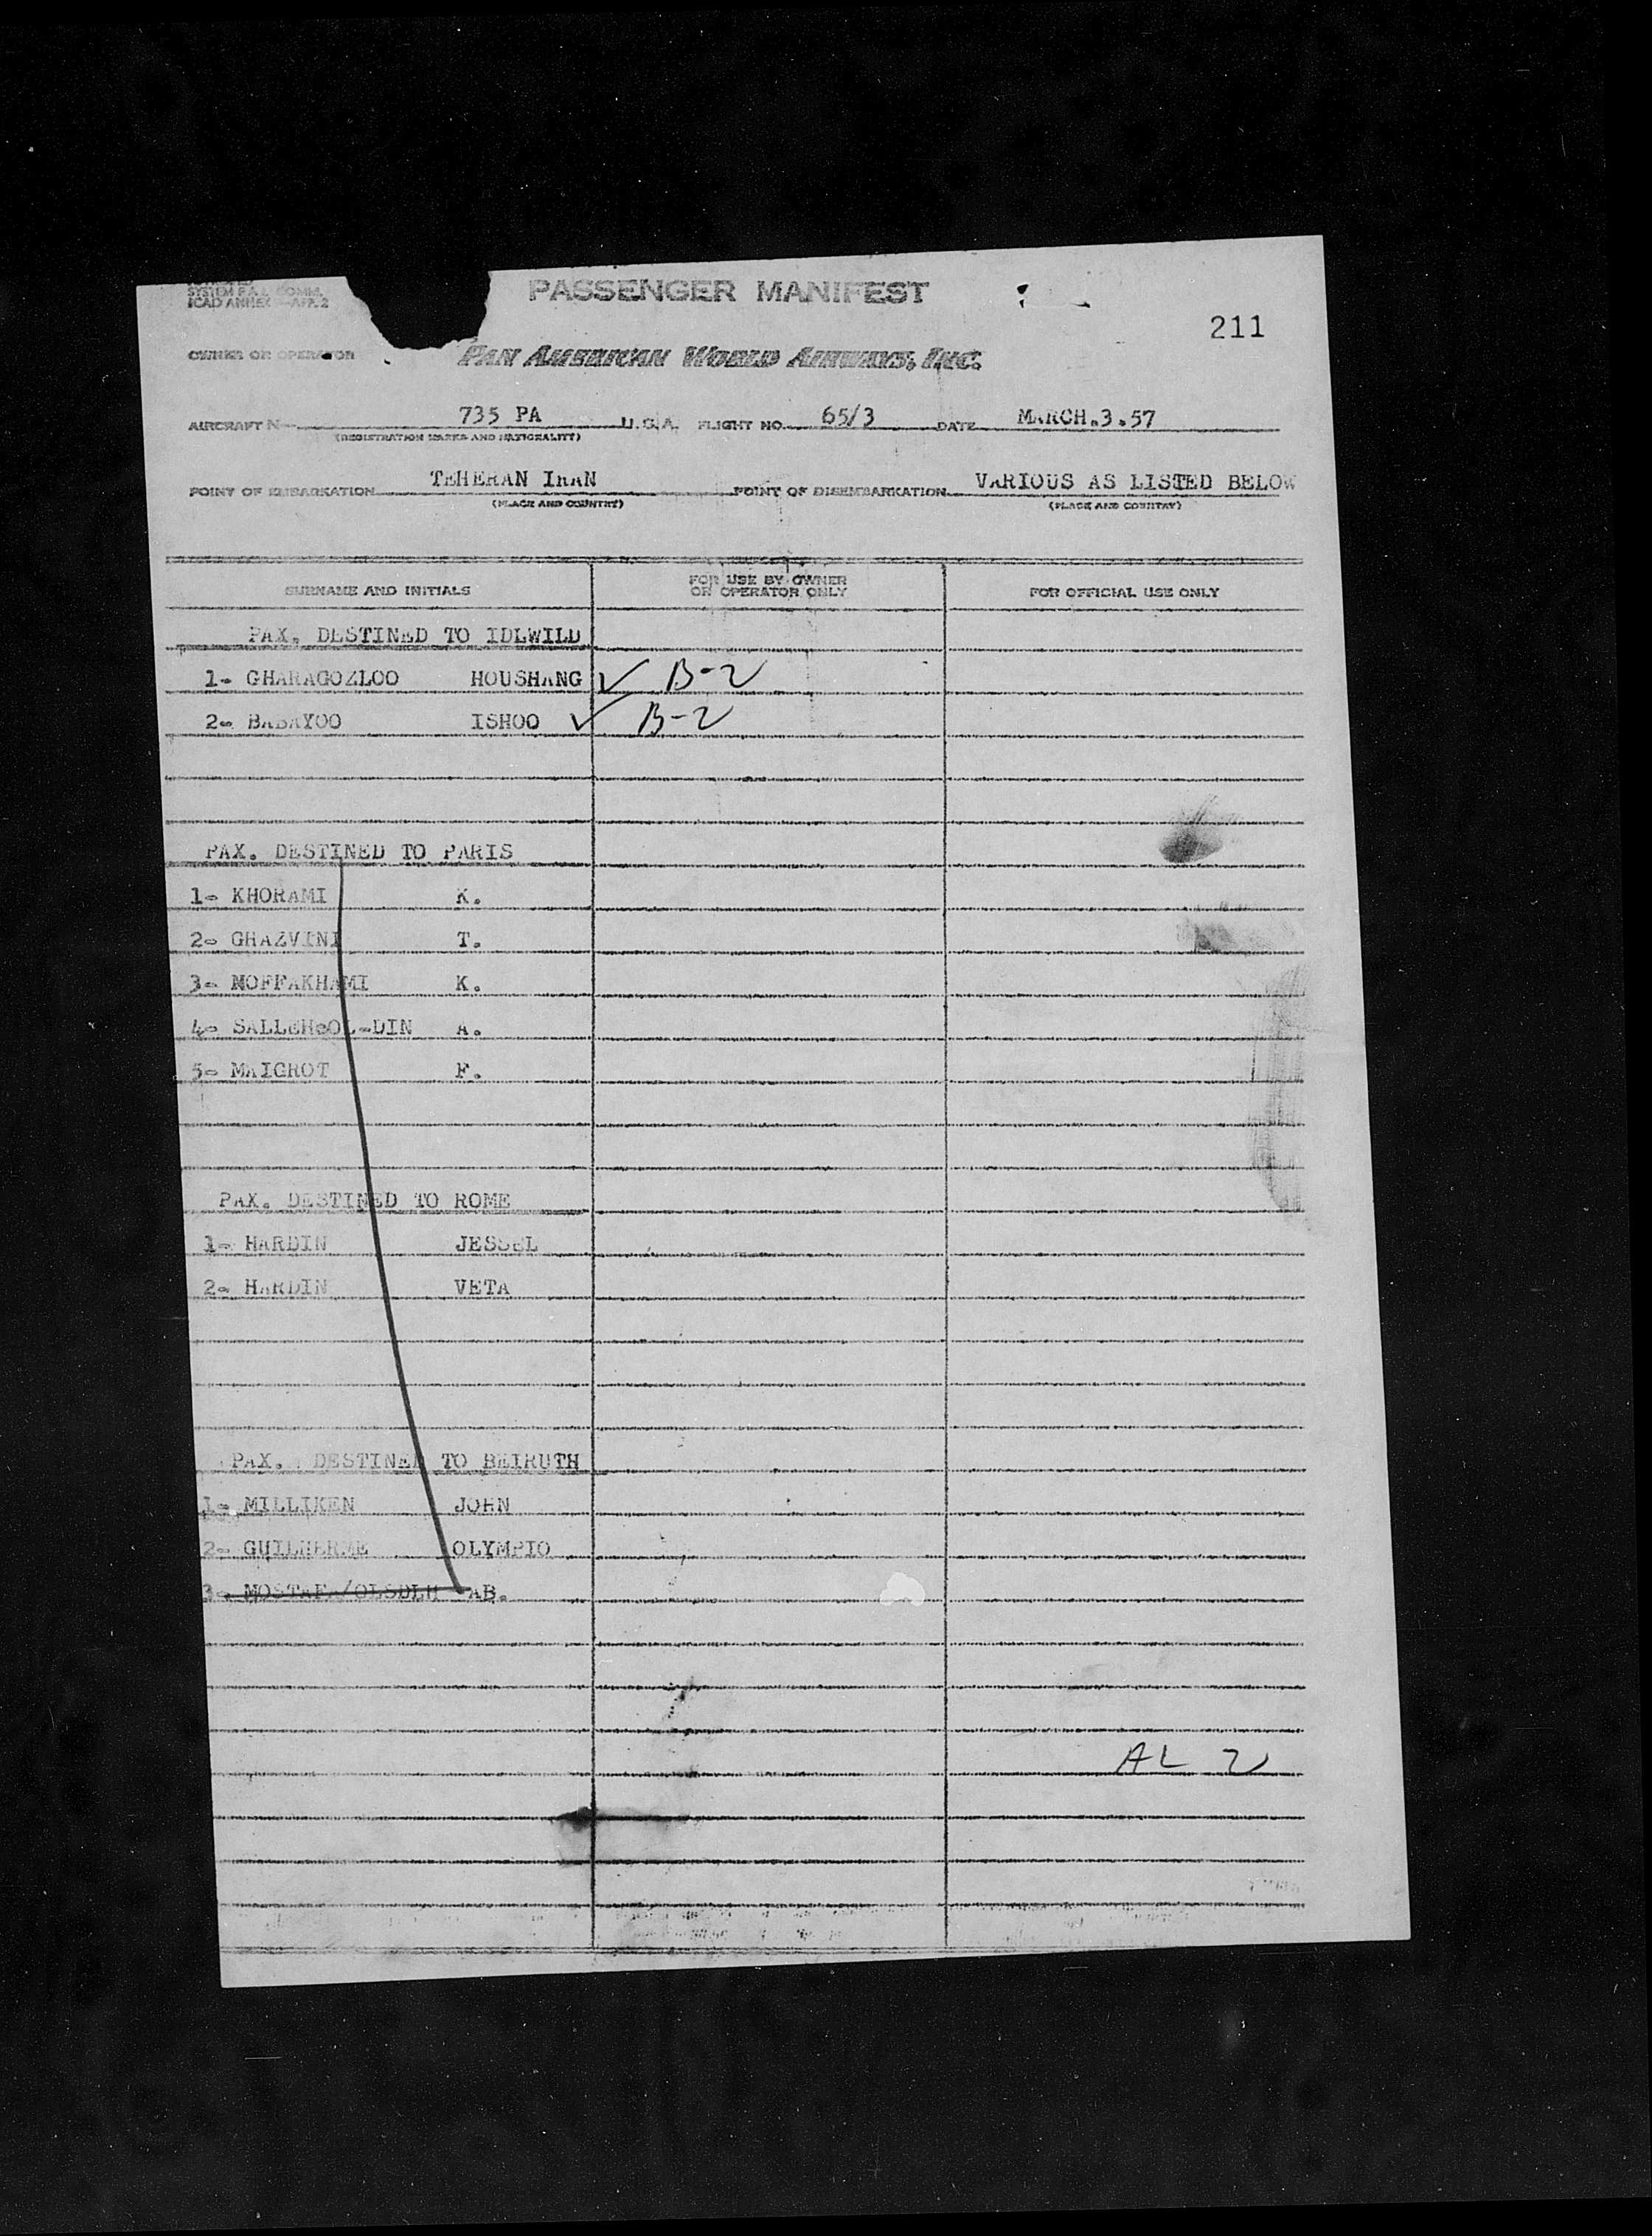 SYSTEM F.A.L. COMM.
ICAO ANNEX APP. 2
PASSENGER MANIFEST
211
OWNER OR OPERATOR PAN AMERICAN WORLD AIRWAYS, INC.
AIRCRAFT N 735 PA U.S.A. FLIGHT NO. 65/3 DATE MARCH.3.57
(REGISTRATION MARKS AND NATIONALITY)
POINT OF EMBARKATION TEHERAN IRAN POINT OF DISEMBARKATION VARIOUS AS LISTED BELOW
(PLACE AND COUNTRY) (PLACE AND COUNTRY)
SURNAME AND INITIALS FOR USE BY OWNER OR OPERATOR ONLY FOR OFFICIAL USE ONLY
PAX. DESTINED TO IDLWILD
1- GHARAGOZLOO HOUSHANG ✓ B-2
2- BABAYOO ISHOO ✓ B-2
PAX. DESTINED TO PARIS
1- KHORAMI K.
2- GHAZVINI T.
3- MOFFAKHAMI K.
4- SALLEH-OL-DIN A.
5- MAIGROT F.
PAX. DESTINED TO ROME
1- HARDIN JESSEL
2- HARDIN VETA
PAX. DESTINED TO BEIRUTH
1- MILLIKEN JOHN
2- GUILHERME OLYMPIO
3- AB.
AL 2